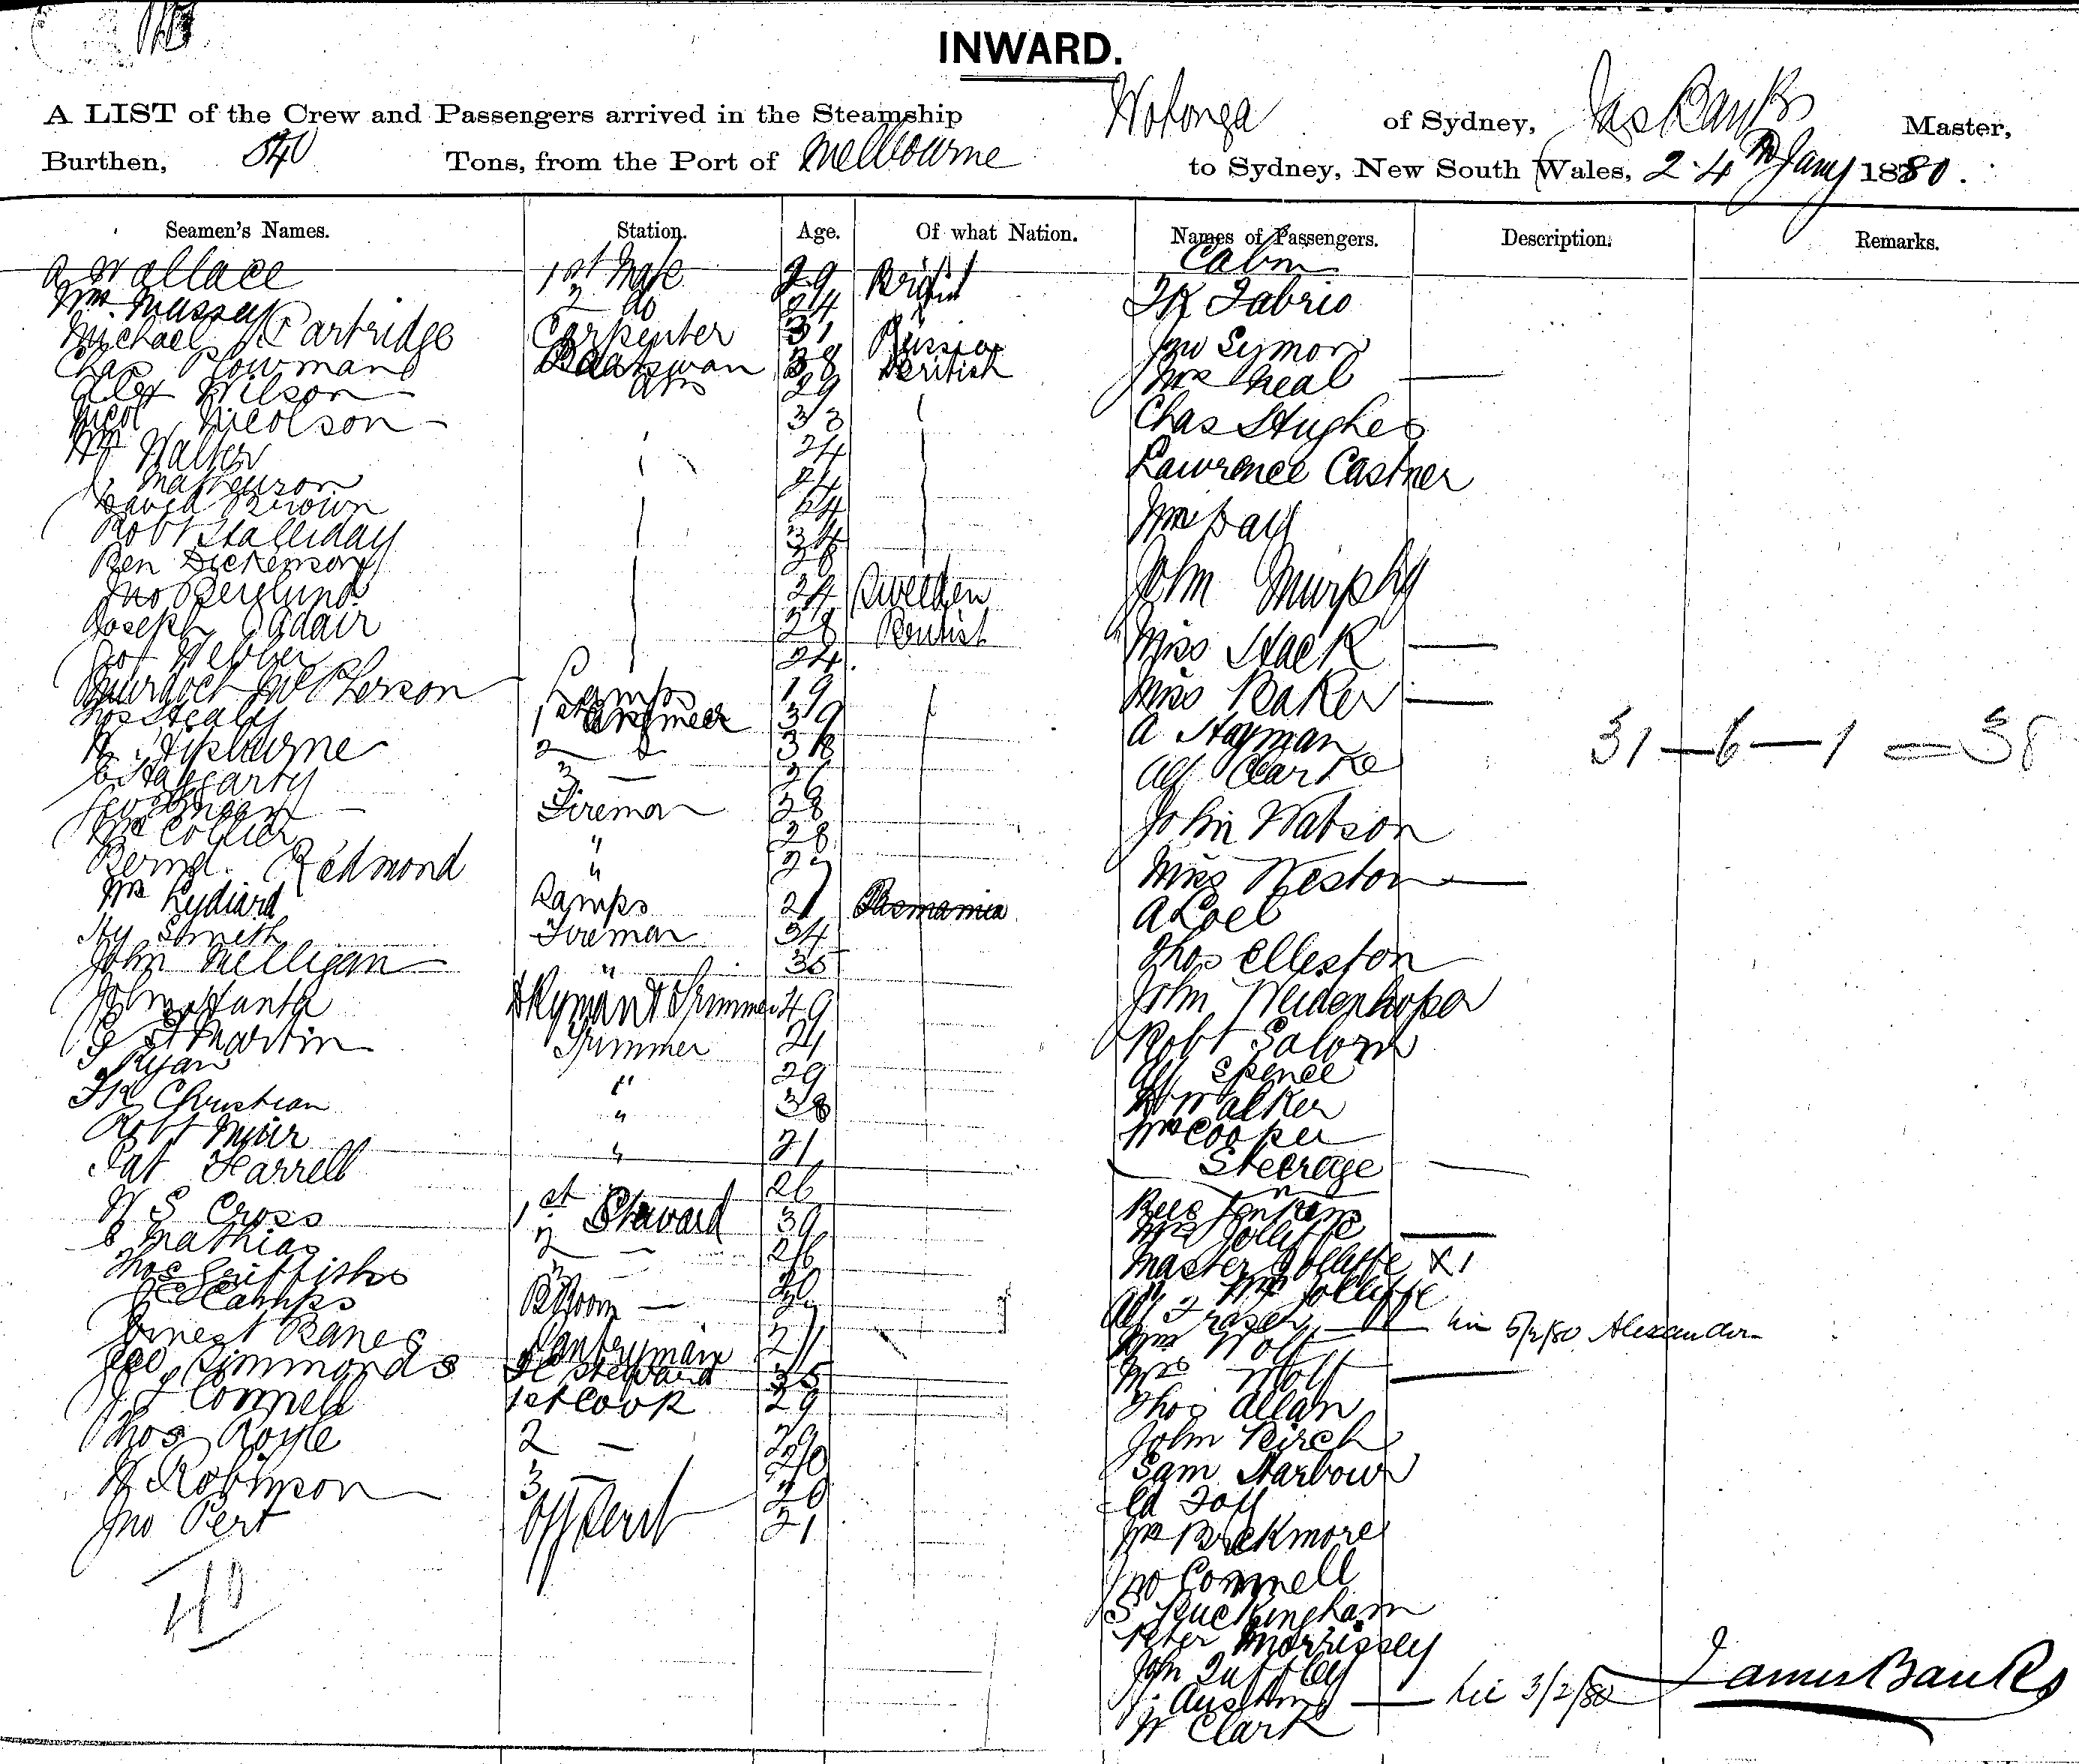 INWARD.
A LIST of the Crew and Passengers arrived in the Steamship Wotonga of Sydney, Jas Banks Master,
Burthen, 540 Tons, from the Port of Melbourne to Sydney, New South Wales, 24th Jany 1880.
Seamen's Names. Station. Age. Of what Nation. Names of Passengers. Description. Remarks.
Cabin
A Wallace 1st Mate 29 British
Wm Massey 2 do 24 Fk Fabrio
Michael Partridge Carpenter 31 Russia
Chas Plowman Boatswain 38 British Mrs Neal
Alex Wilson AB 29
Nicol Nicolson 33 Chas Hughes
Wm Walter 24
Lawrence Castner
David Brown 24
Robt Halliday 34 Wm Day
Ben Dickenson 28
Jno Berglund 24 Sweeden John Murphy
Joseph Adair 28 British
Webber 24 Miss Hack
Murdoch McPherson Lamps 19 Miss Baker
Thos Healy 1st Engineer 39 A Hayman
2 38 Alf Clarke
E Haggarty 3
Fireman 28 John Watson
Wm Collier " 28
Bernd. Redmond " 27 Miss Weston
Wm Lydiard Lamps 21 Tasmania A Loel
Hy Smith Fireman 34
John Milligan " 35 Thos Elleston
John Hanta 49 John
G St Martin Trimmer 21 Robt Salom
J Ryan " 29 Alf Spence
Fk Christian " 38 H Walker
Robt Muir " 21 Wm Cooper
Pat Harrell 26 Steerage
W S Cross 1st Steward 39
E Mathias 2 — 26 Mrs Jolliffe
Thos Griffiths 3 Master Jolliffe X 1
Camps B Room — Wm Jolliffe
Ernest Banes Pantryman 21 Alf Fraser — Lin 5/2/80 Alexander
Geo Simmonds Steward 35 Wm Wolf
J L Connell 1st Cook 29 Mrs Wolf
Thos Royle 2 — 29 Thos Allan
W Robinson 3 — 20 John Birch
Jno Pert 21 Sam Harbour
Ed Foy
Wm Brekmore
Jno Connell
S Buckingham
Peter Morrissey
John
J. Austin — Lie 3/2/80
W Clark
31 — 6 — 1 = 38
40
James Banks